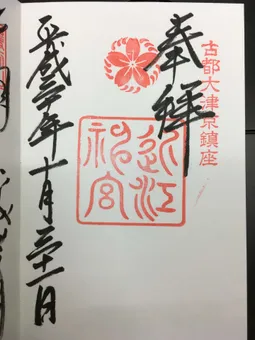 古都大津京鎮座
奉拝
近江
神宮
平成三十年十月三十一日